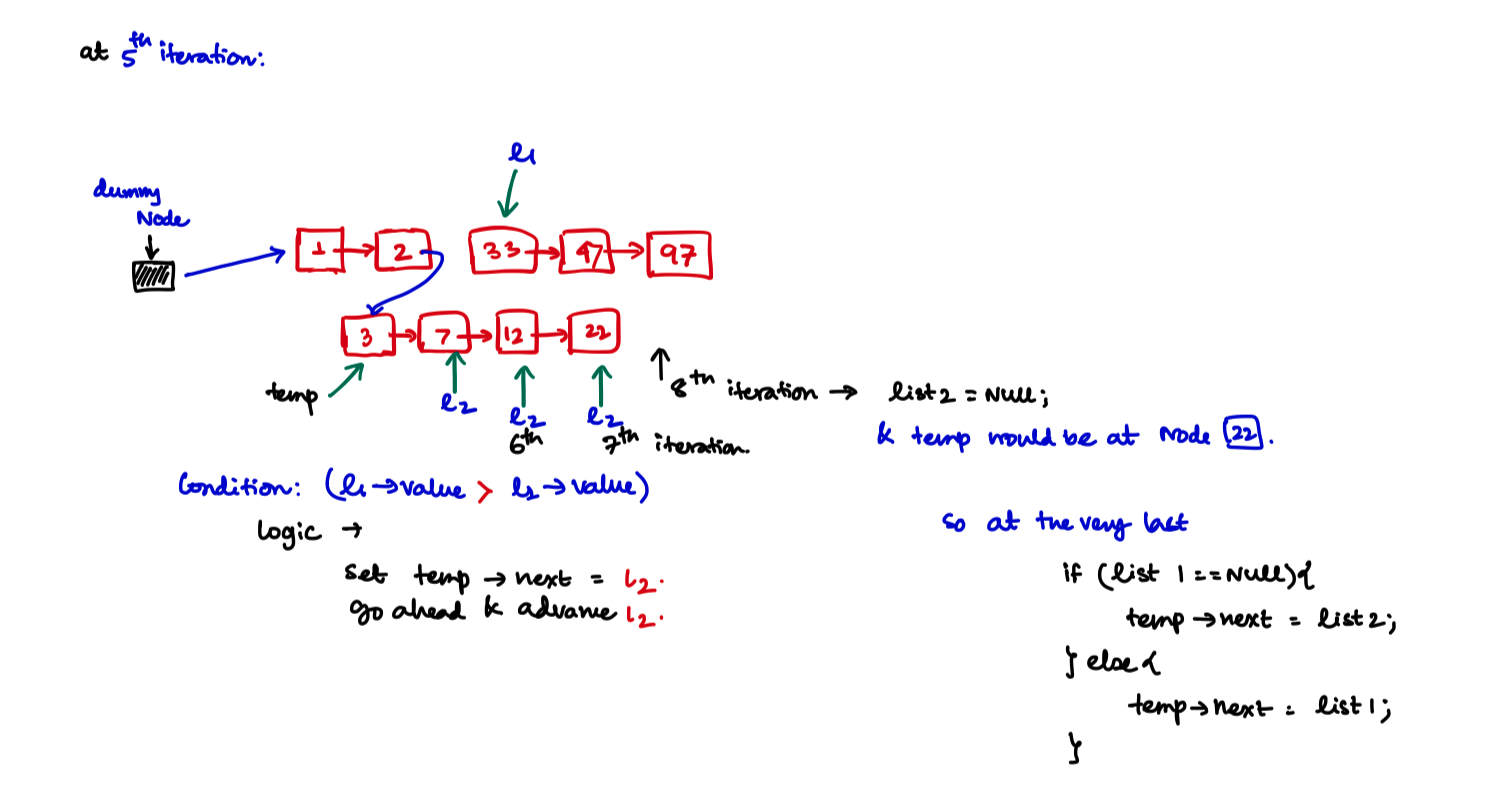 at 5th iteration:
l1
dummy
Node
1 → 2 33 → 47 → 97
3 → 7 → 12 → 22
temp
l2
l2
6th
l2
7th iteration.
8th iteration → list2 = NULL;
& temp would be at Node 22.
Condition: (l1 → value > l2 → value)
logic →
set temp → next = L2.
go ahead & advance L2.
so at the very last
if (list 1 == NULL){
temp → next = list 2;
} else {
temp → next = list 1;
}